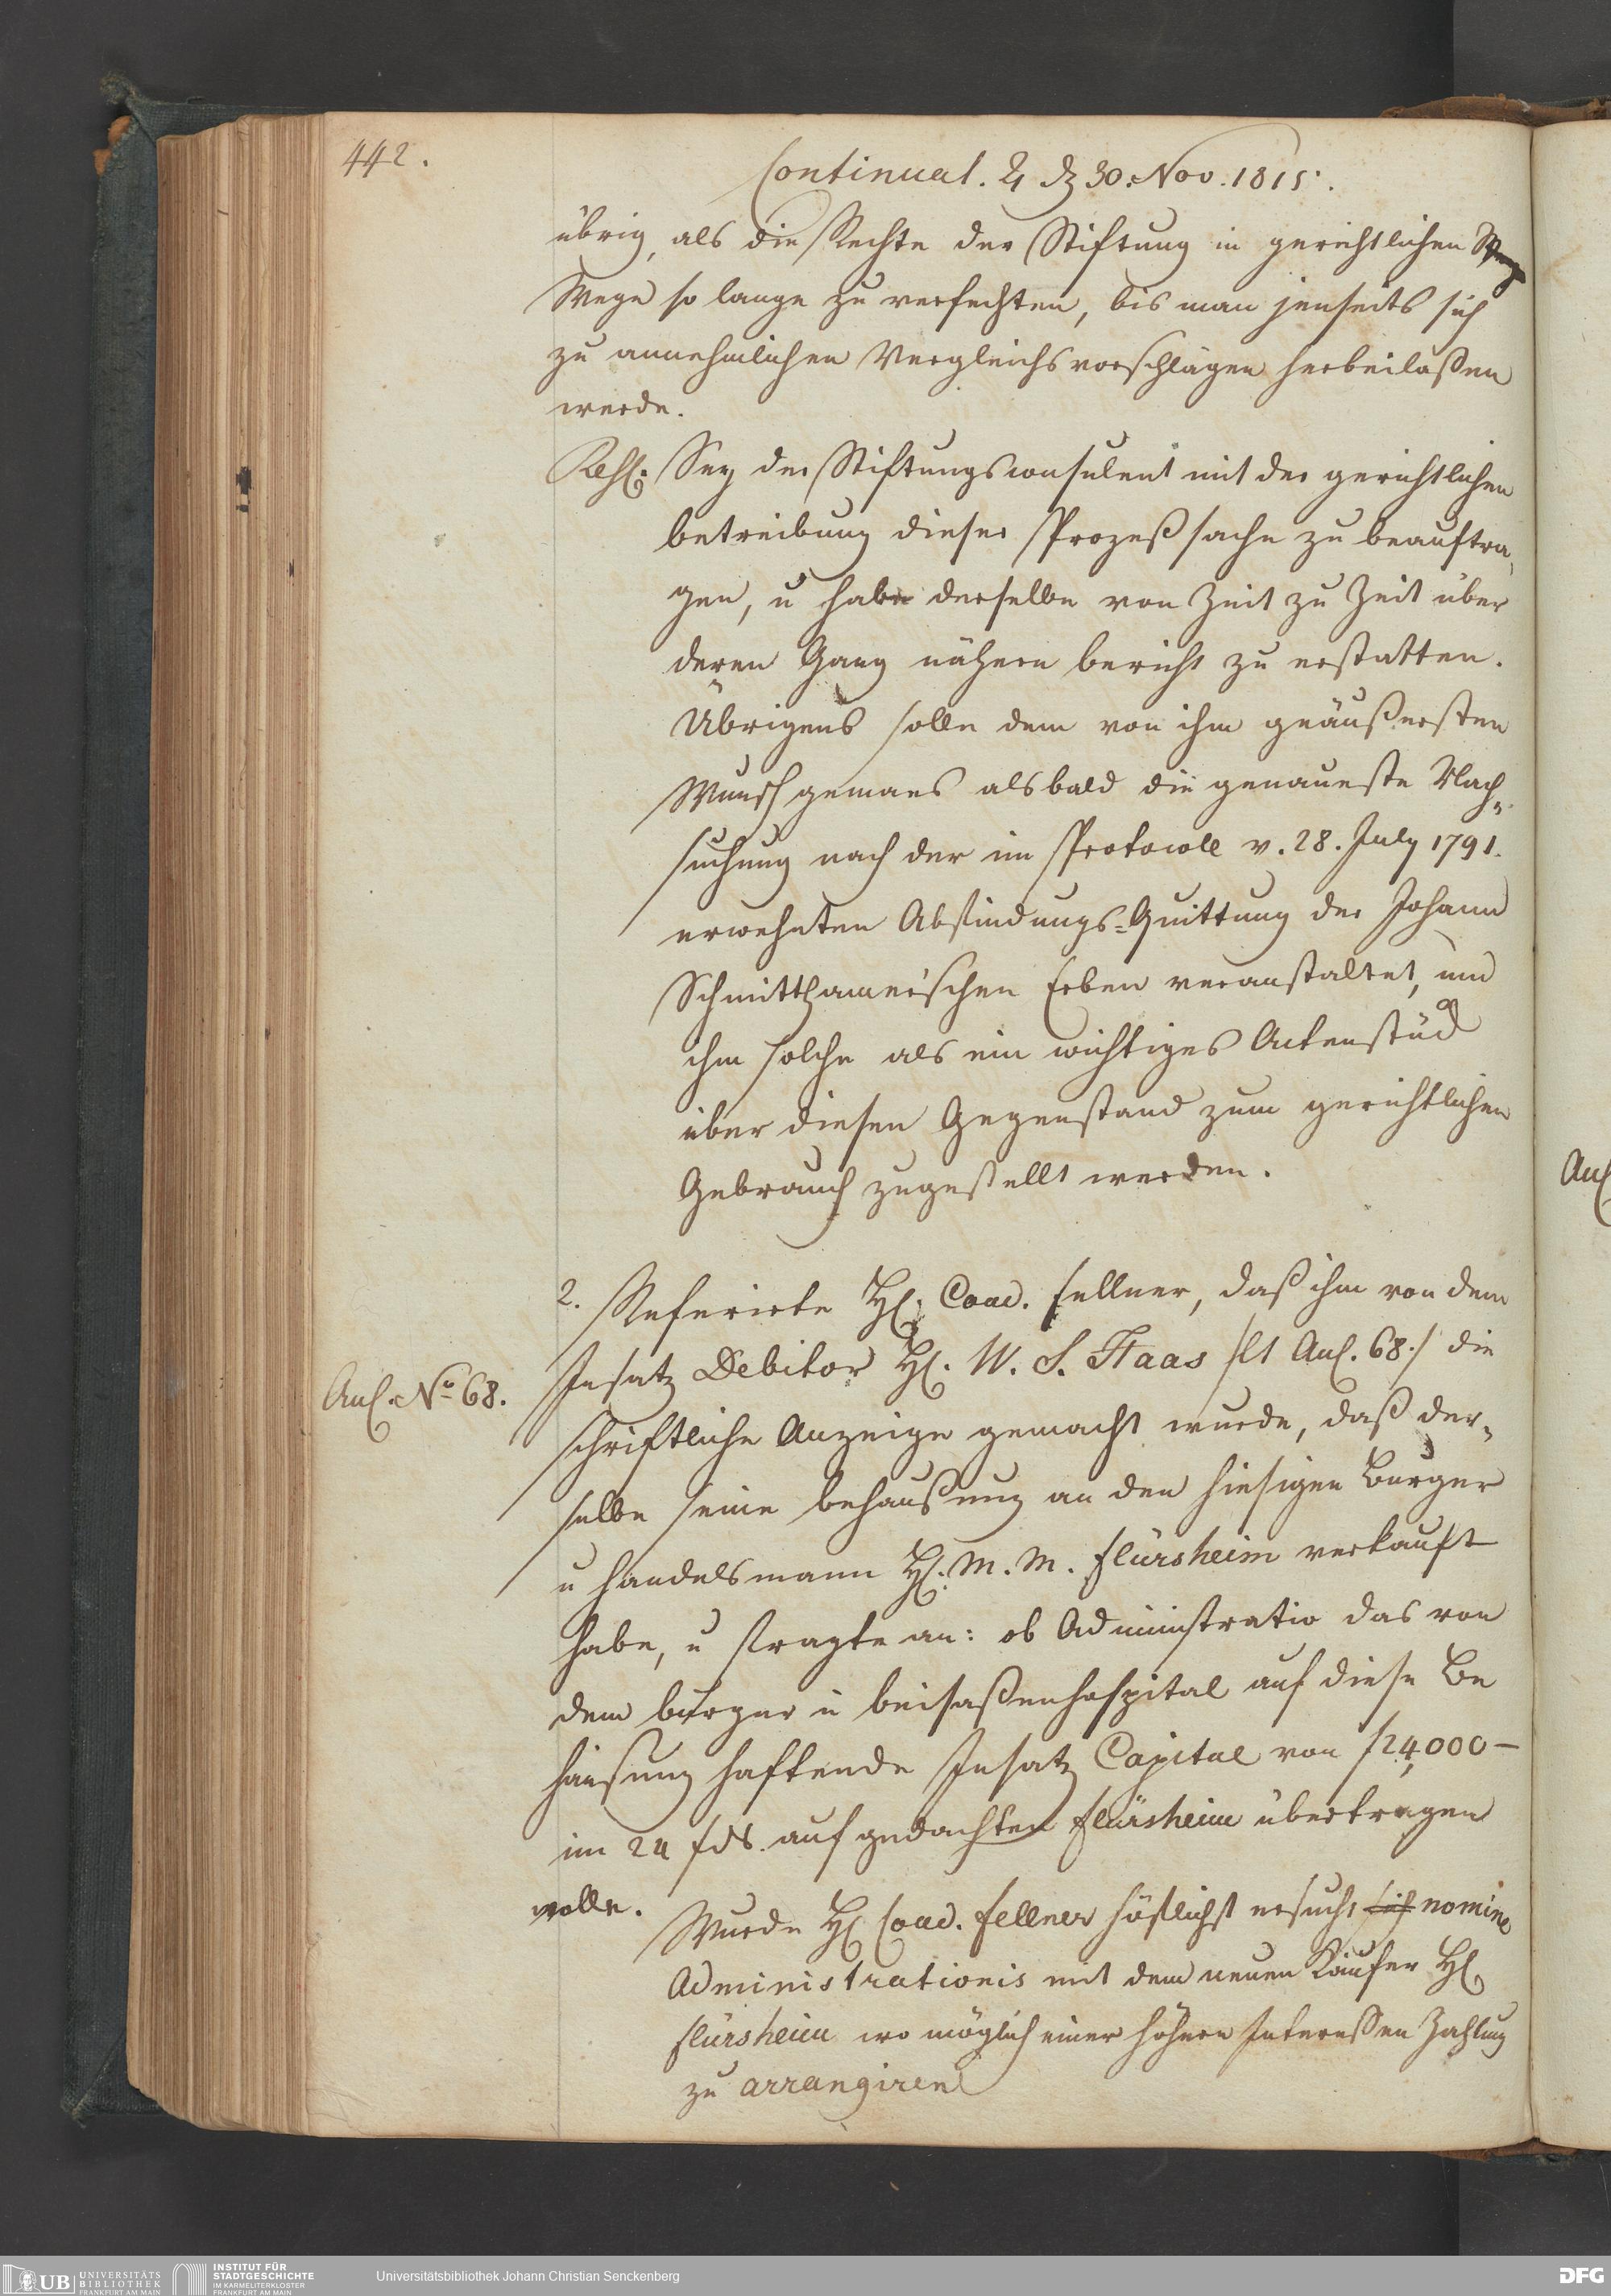 442.
Continuat. ♃ d 30. Nov. 1815.
übrig, als die Rechte der Stiftung in gerichtlichen
Wege so lange zu verfechten, bis man jenseits sich
zu annehmlichen Vergleichsvorschlägen herbeilaßen
werde.
Rehs: Sey der Stiftungsconsulent mit der gerichtlichen
betreibung dieser Prozeßsache zu beauftra¬
gen, u habe derselbe von Zeit zu Zeit über
deren Gang nähern bericht zu erstatten.
Übrigens solle dem von ihm geäußersten
Wunsch gemaes alsbald die genaueste Nach¬
suchung nach der im Protocoll v. 28. July 1791.
erwehnten Abfindungs-Quittung der Johann
Schmitthamerischen Erben veranstaltet, und
ihm solche als ein wichtiges Actenstück
über diesen Gegenstand zum gerichtlichen
Gebrauch zugestellt werden.
2. Referirte H. Coad. Fellner, daß ihm von dem
Anl. No 68.
Insatz Debitor H. W. S. Haas /lt Anl. 68./ die
schriftliche Anzeige gemacht wurde, daß der¬
selbe seine behaußung an den hiesigen Burger
u handelsmann H. M. M. Flürsheim verkauft
habe, u fragte an: ob Administratio das von
dem burger u beisaßenhospital auf diese Be
haußung haftende Insatz Capital von f 24,000 —
im 24 f auf gedachten Flürsheim übertragen
wolle.
Wurde H Coad. Fellner höflichst ersucht sich nomine
Administrationis mit dem neuen Käufer H
Flürsheim wo möglich einer höhern Intereßen Zahlung
zu arrangiren
Anl
UB UNIVERSITÄTS
BIBLIOTHEK
FRANKFURT AM MAIN
INSTITUT FÜR
STADTGESCHICHTE
IM KARMELITERKLOSTER
FRANKFURT AM MAIN
Universitätsbibliothek Johann Christian Senckenberg
DFG